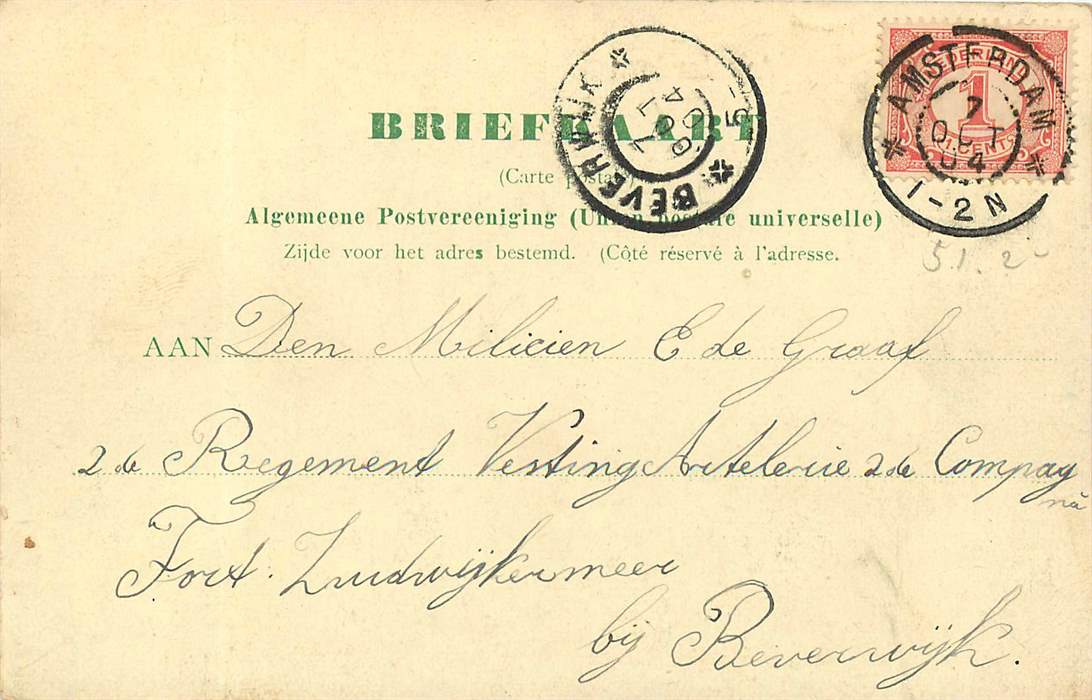 BRIEFKAART
(Carte postale)
Algemeene Postvereeniging (Union postale universelle)
Zijde voor het adres bestemd. (Côté réservé à l'adresse.
NEDERLAND
1
CENT
AMSTERDAM
7
OCT
04
1-2N
BEVERWIJK
7 OCT
04
5-
5.1.2-
AAN Den Milicien E de Graaf
2de Regement Vesting Artelerie 2de Compag
nie
Fort. Zuidwijkermeer
bij Beverwijk.